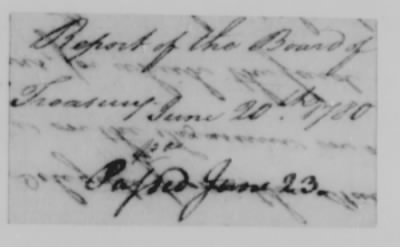 Report of the Board of
Treasury June 20th. 1780
Passed June 23.